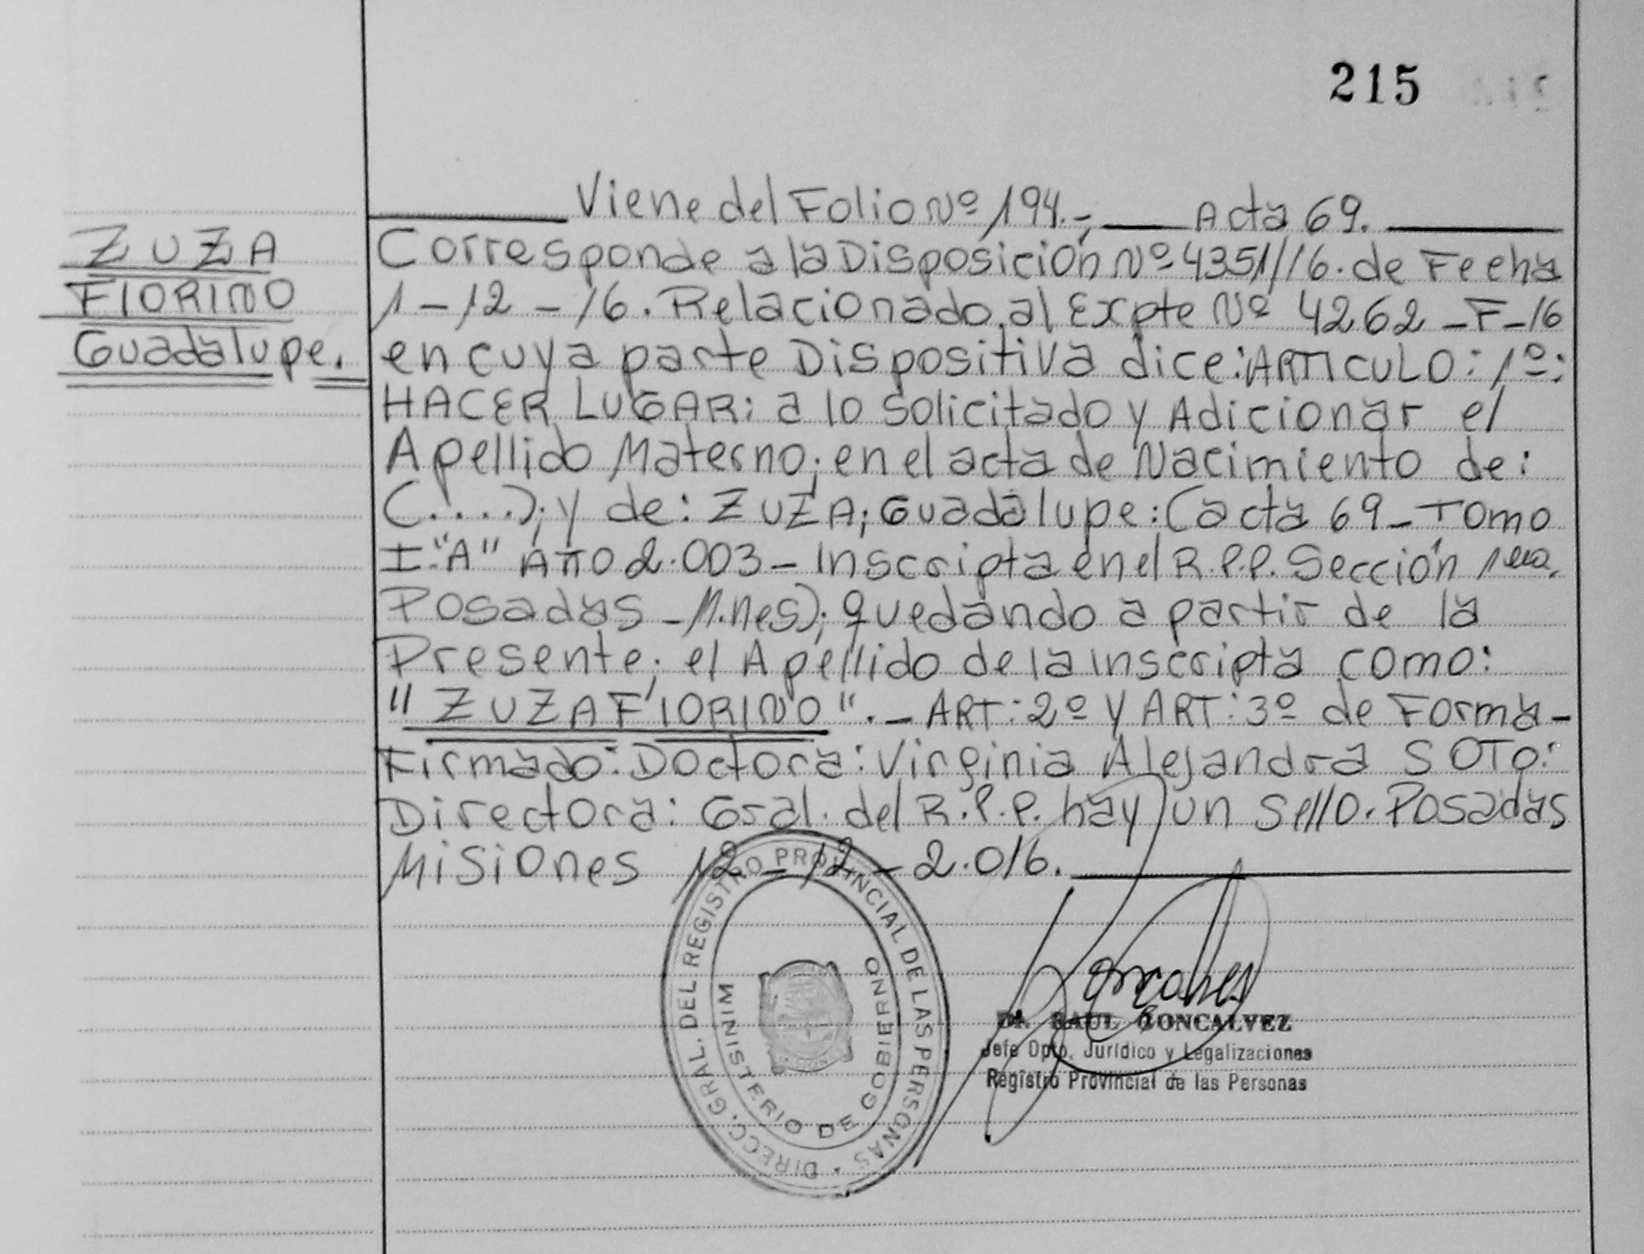 215
Viene del Folio Nº 194.-, Acta 69.
ZUZA
FIORINO
Guadalupe.
Corresponde a la Disposición Nº 4351/16. de Fecha
1-12-16. Relacionado al Expte Nº 4262-F-16
en cuya parte Dispositiva dice: ARTICULO: 1º:
HACER LUGAR: a lo solicitado y Adicionar el
Apellido Materno; en el acta de Nacimiento de:
(.....); y de: ZUZA; Guadalupe: (acta 69-Tomo
I-"A" Año 2.003- Inscripta en el R.P.P. Sección 1era.
Posadas - M.nes); quedando a partir de la
Presente; el Apellido de la inscripta como:
"ZUZA FIORINO".- ART: 2º Y ART: 3º de Forma-
Firmado: Doctora: Virginia Alejandra SOTO:
Directora: Gral. del R.P.P. hay un Sello. Posadas
Misiones 12-12-2.016.
DIRECC. GRAL. DEL REGISTRO PROVINCIAL DE LAS PERSONAS
MINISTERIO DE GOBIERNO
Dr. RAUL GONCALVEZ
Jefe Dpto. Jurídico y Legalizaciones
Registro Provincial de las Personas